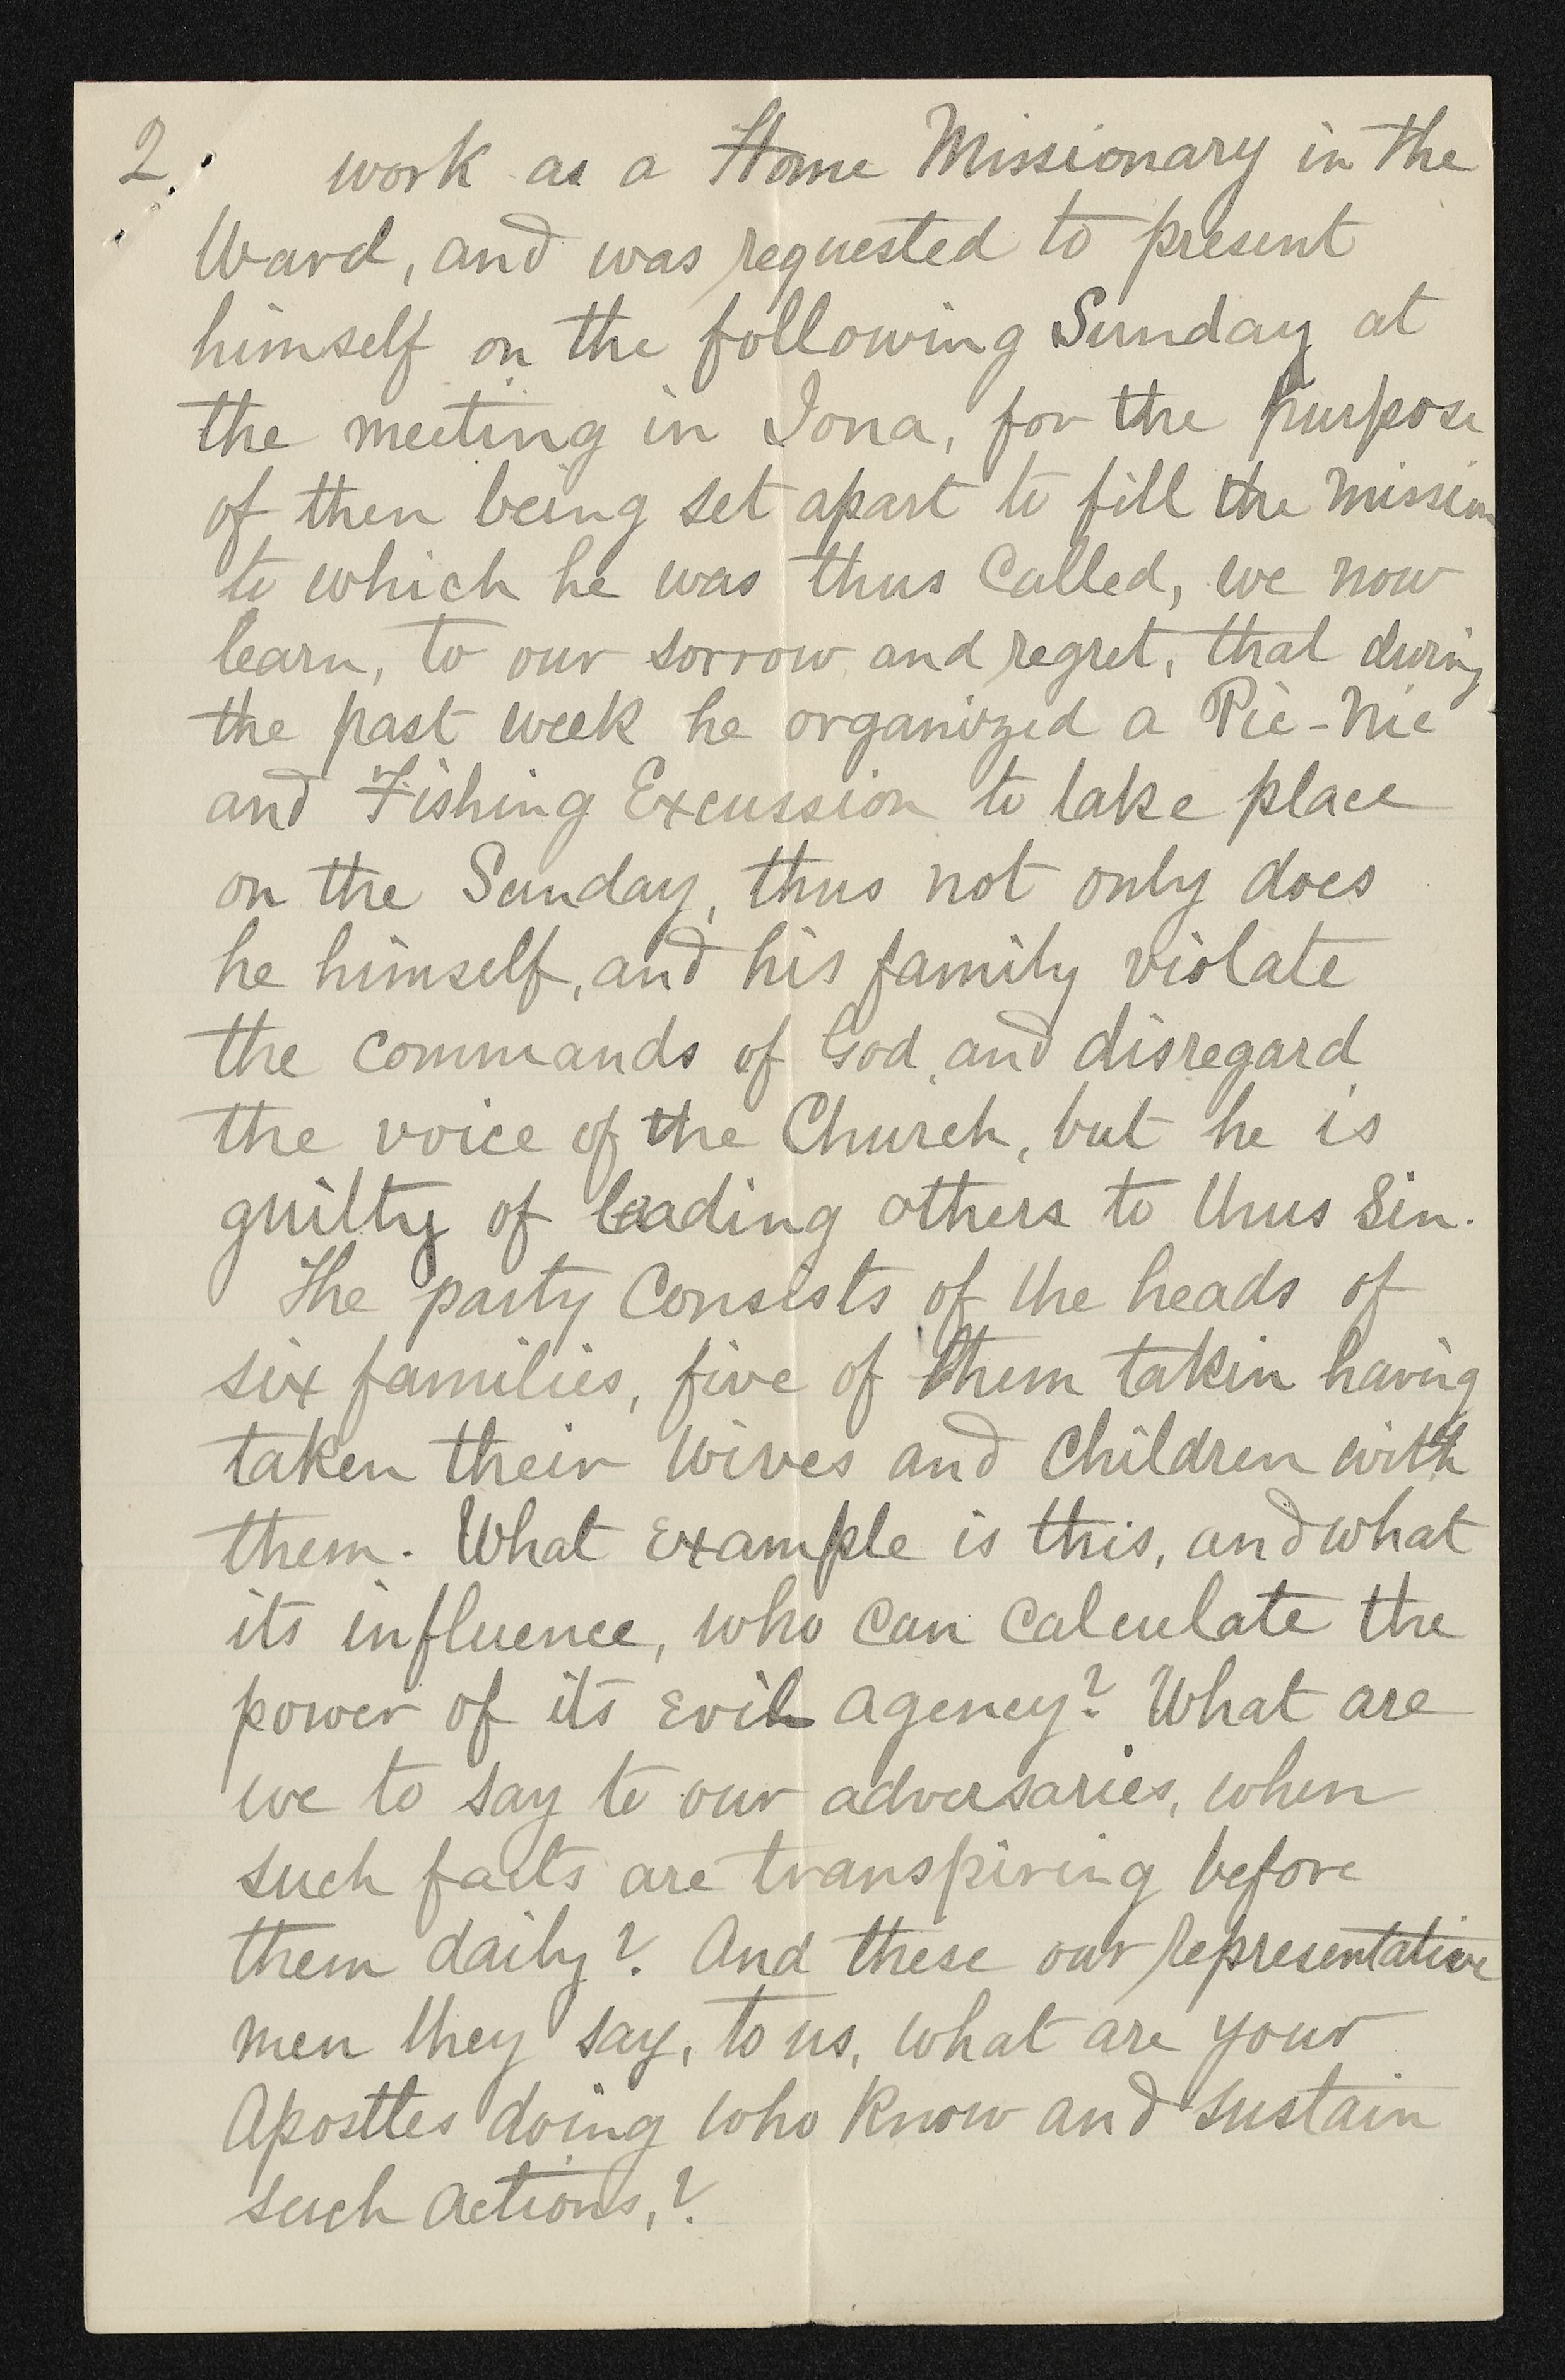 2. work as a Home Missionary in the
Ward, and was requested to present
himself on the following Sunday at
the meeting in Iona, for the purpose
of then being set apart to fill the Mission
to which he was thus Called, we now
learn, to our sorrow and regret, that during
the past week he organized a Pic-Nic
and Fishing Excussion to take place
on the Sunday, thus not only does
he himself, and his family violate
the Commands of God, and disregard
the voice of the Church, but he is
guilty of leading others to thus Sin.
The party Consists of the heads of
six families, five of them takin having
taken their Wives and Children with
them. What Example is this, and what
its influence, who can Calculate the
power of its Evil agency? What are
we to say to our adversaries, when
such facts are transpiring before
them daily? And these our representative
men they say, to us, what are your
Apostles doing who Know and sustain
such actions,?